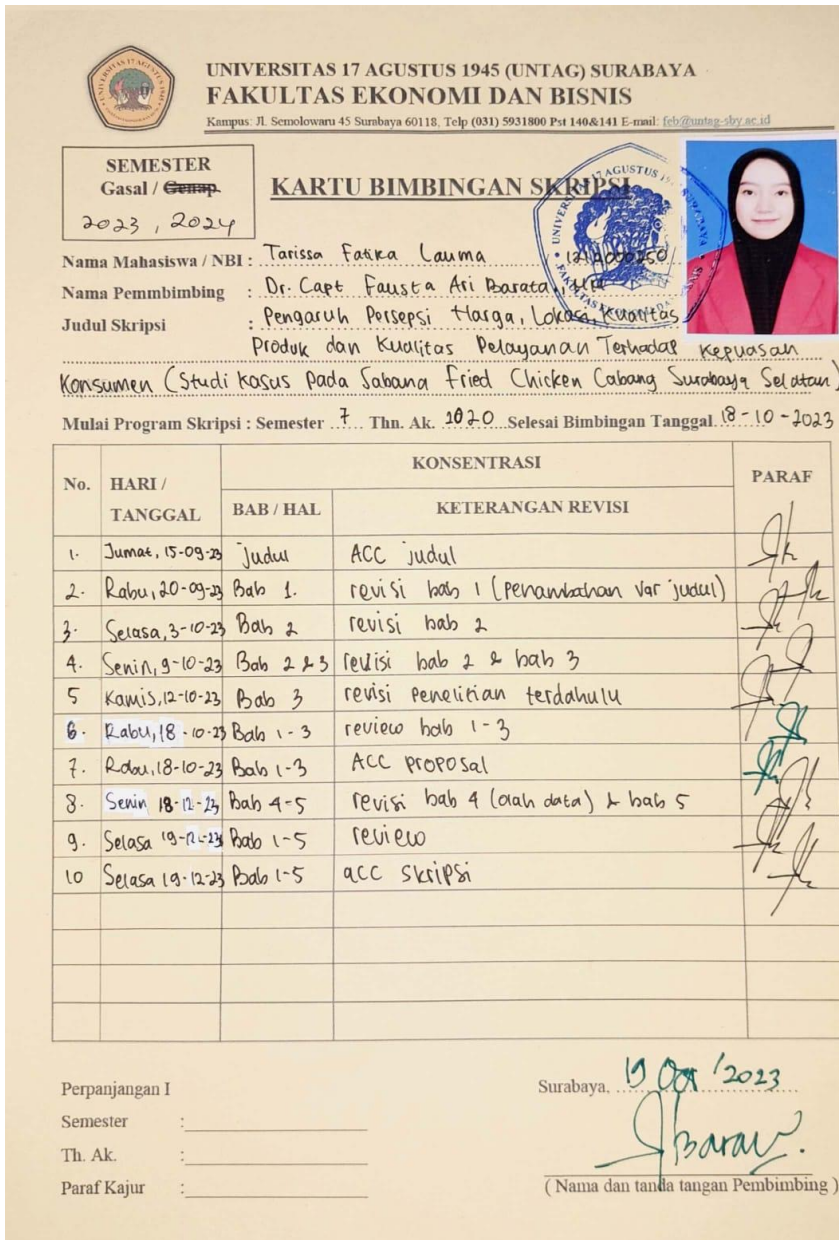 UNIVERSITAS 17 AGUSTUS 1945 (UNTAG) SURABAYA
FAKULTAS EKONOMI DAN BISNIS
Kampus: Jl. Semolowaru 45 Surabaya 60118, Telp (031) 5931800 Pst 140&141 E-mail: feb@untag-sby.ac.id
SEMESTER
Gasal / Genap
2023, 2024
KARTU BIMBINGAN SKRIPSI
Nama Mahasiswa / NBI : Tarissa Fatika Lauma
Nama Pemmbimbing : Dr. Capt Fausta Ari Barata,
Judul Skripsi : Pengaruh Persepsi Harga, Lokasi, Kualitas
Produk dan Kualitas Pelayanan Terhadap Kepuasan
Konsumen (Studi Kasus Pada Sabana Fried Chicken Cabang Surabaya Selatan)
Mulai Program Skripsi : Semester 7 Thn. Ak. 2020 Selesai Bimbingan Tanggal 18-10-2023
No. HARI / TANGGAL KONSENTRASI PARAF
BAB / HAL KETERANGAN REVISI
1. Jumat, 15-09-23 judul ACC judul
2. Rabu, 20-09-23 Bab 1. revisi bab 1 (penambahan var judul)
3. Selasa, 3-10-23 Bab 2 revisi bab 2
4. Senin, 9-10-23 Bab 2 & 3 revisi bab 2 & bab 3
5 Kamis, 12-10-23 Bab 3 revisi penelitian terdahulu
6. Rabu, 18-10-23 Bab 1-3 review bab 1-3
7. Rabu, 18-10-23 Bab 1-3 ACC proposal
8. Senin 18-12-23 Bab 4-5 revisi bab 4 (olah data) & bab 5
9. Selasa 19-12-23 Bab 1-5 review
10 Selasa 19-12-23 Bab 1-5 acc skripsi
Perpanjangan I
Semester :
Th. Ak. :
Paraf Kajur :
Surabaya, 19 Oct '2023
( Nama dan tanda tangan Pembimbing )